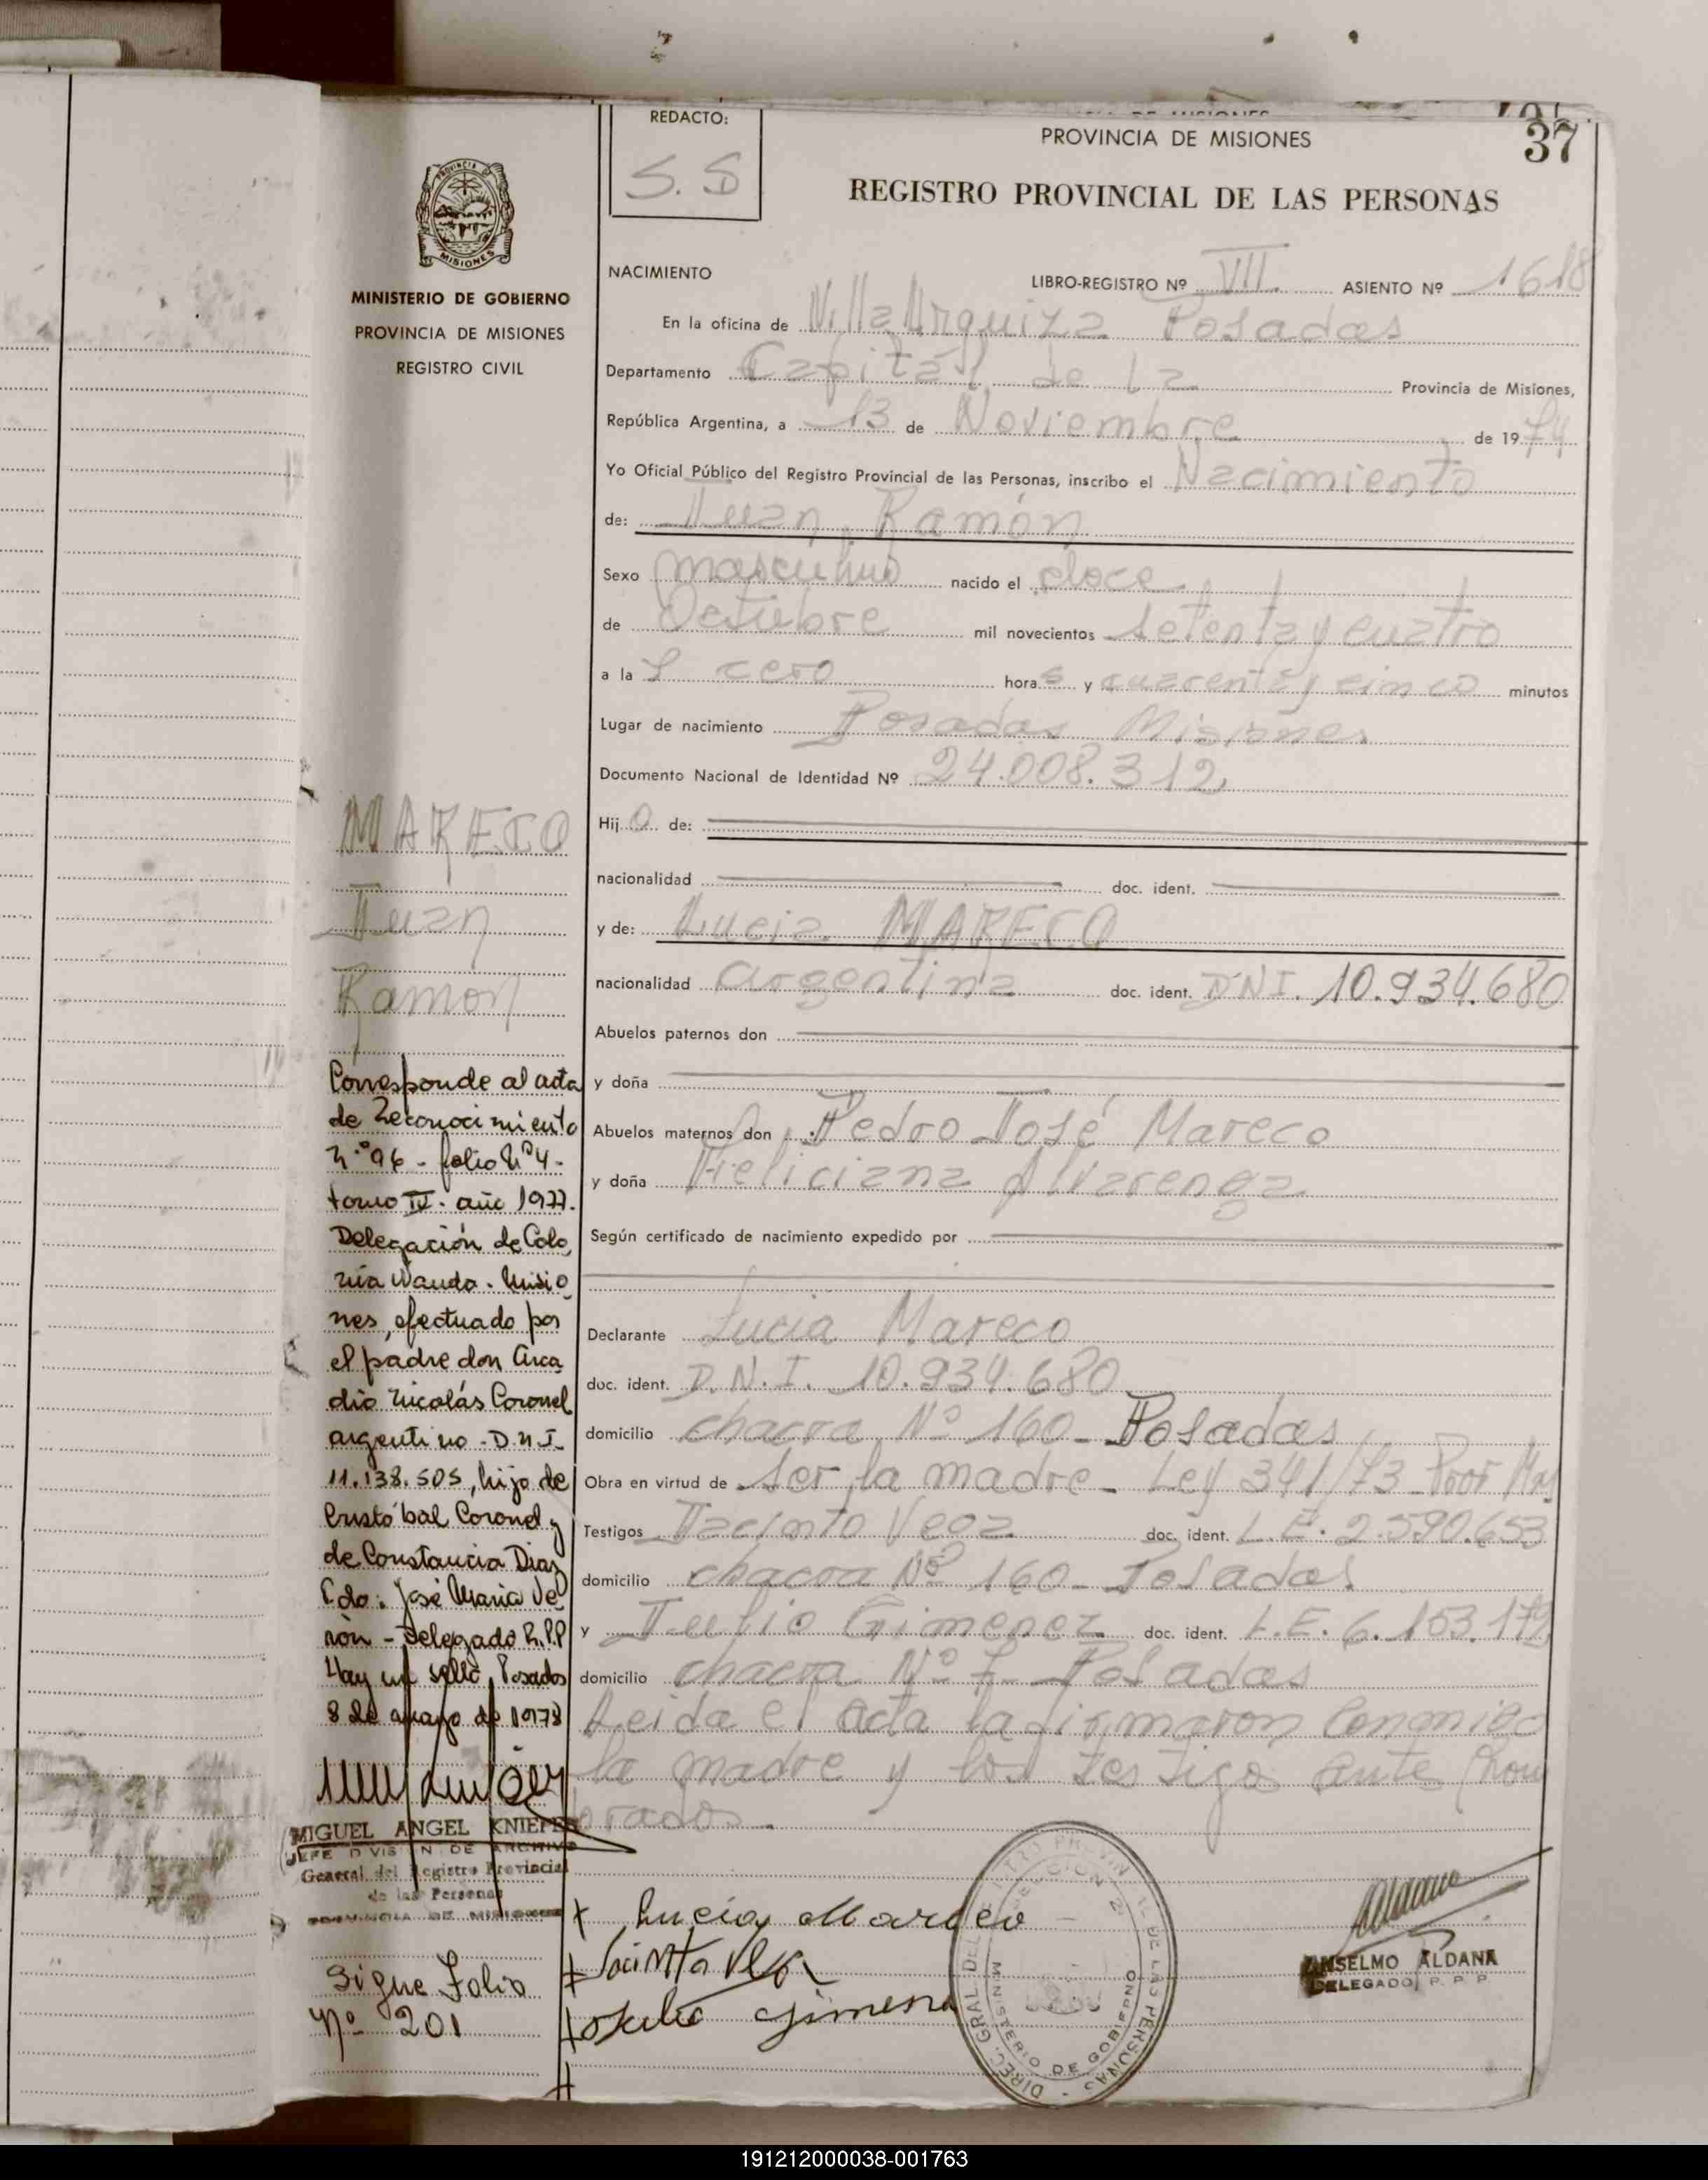 37
REDACTO:
S.S
PROVINCIA DE MISIONES
REGISTRO PROVINCIAL DE LAS PERSONAS
MISIONES
MINISTERIO DE GOBIERNO
PROVINCIA DE MISIONES
REGISTRO CIVIL
NACIMIENTO LIBRO-REGISTRO Nº VII. ASIENTO Nº 1618
En la oficina de Villa Urquiza Posadas
Departamento Capital de La Provincia de Misiones,
República Argentina, a 13 de Noviembre de 1974
Yo Oficial Público del Registro Provincial de las Personas, inscribo el Nacimiento
de: Juan Ramón
Sexo masculino nacido el doce
de Octubre mil novecientos setenta y cuatro
a la s cero horas y cuarenta y cinco minutos
Lugar de nacimiento Posadas Misiones
Documento Nacional de Identidad Nº 24.008.312
Hijo de:
nacionalidad doc. ident.
y de: Lucia MARECO
nacionalidad argentina doc. ident. DNI. 10.934.680
Abuelos paternos don
y doña
Abuelos maternos don Pedro José Mareco
y doña Feliciana Alvarenga
Según certificado de nacimiento expedido por
Declarante Lucia Mareco
doc. ident. D.N.I. 10.934.680
domicilio chacra Nº 160 - Posadas
Obra en virtud de ser la madre - Ley 341/73
Testigos Jacinto Vega doc. ident. L.E. 2.590.653
domicilio chacra Nº 160 - Posadas
y Julio Gimenez doc. ident. L.E. 6.153.172
domicilio chacra Nº 7 - Posadas
Leida el acta la firmaron conmigo
la madre y los testigo ante
MARECO
Juan
Ramon
Corresponde al acta
de reconocimiento
nº 96 - folio Nº 4 -
tomo IV. año 1977.
Delegación de Colo
nia Wanda. Misio
nes, efectuado por
el padre don Arca
dio Nicolás Coronel
argentino - D.N.I.
11.138.505, hijo de
Cristóbal Coronel y
de Constancia Diaz
Fdo: José Maria Ve
rón - Delegado R.P.P
Hay un sello, Posadas
8 de mayo de 1978
MIGUEL ANGEL KNIEPER
JEFE DIVISION DE ARCHIVO
General del Registro Provincial
de las Personas
PROVINCIA DE MISIONES
Sigue Folio
Nº 201
Lucia Mareco
Jacinto Vega
Julio Gimenez
DIREC. GRAL DEL REGISTRO PROVINCIAL DE LAS PERSONAS
MINISTERIO DE GOBIERNO
ANSELMO ALDANA
DELEGADO R. P. P.
191212000038-001763